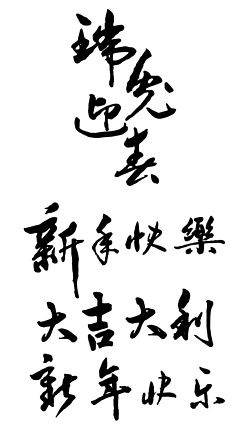 瑞兔迎春
新年快樂
大吉大利
新年快乐